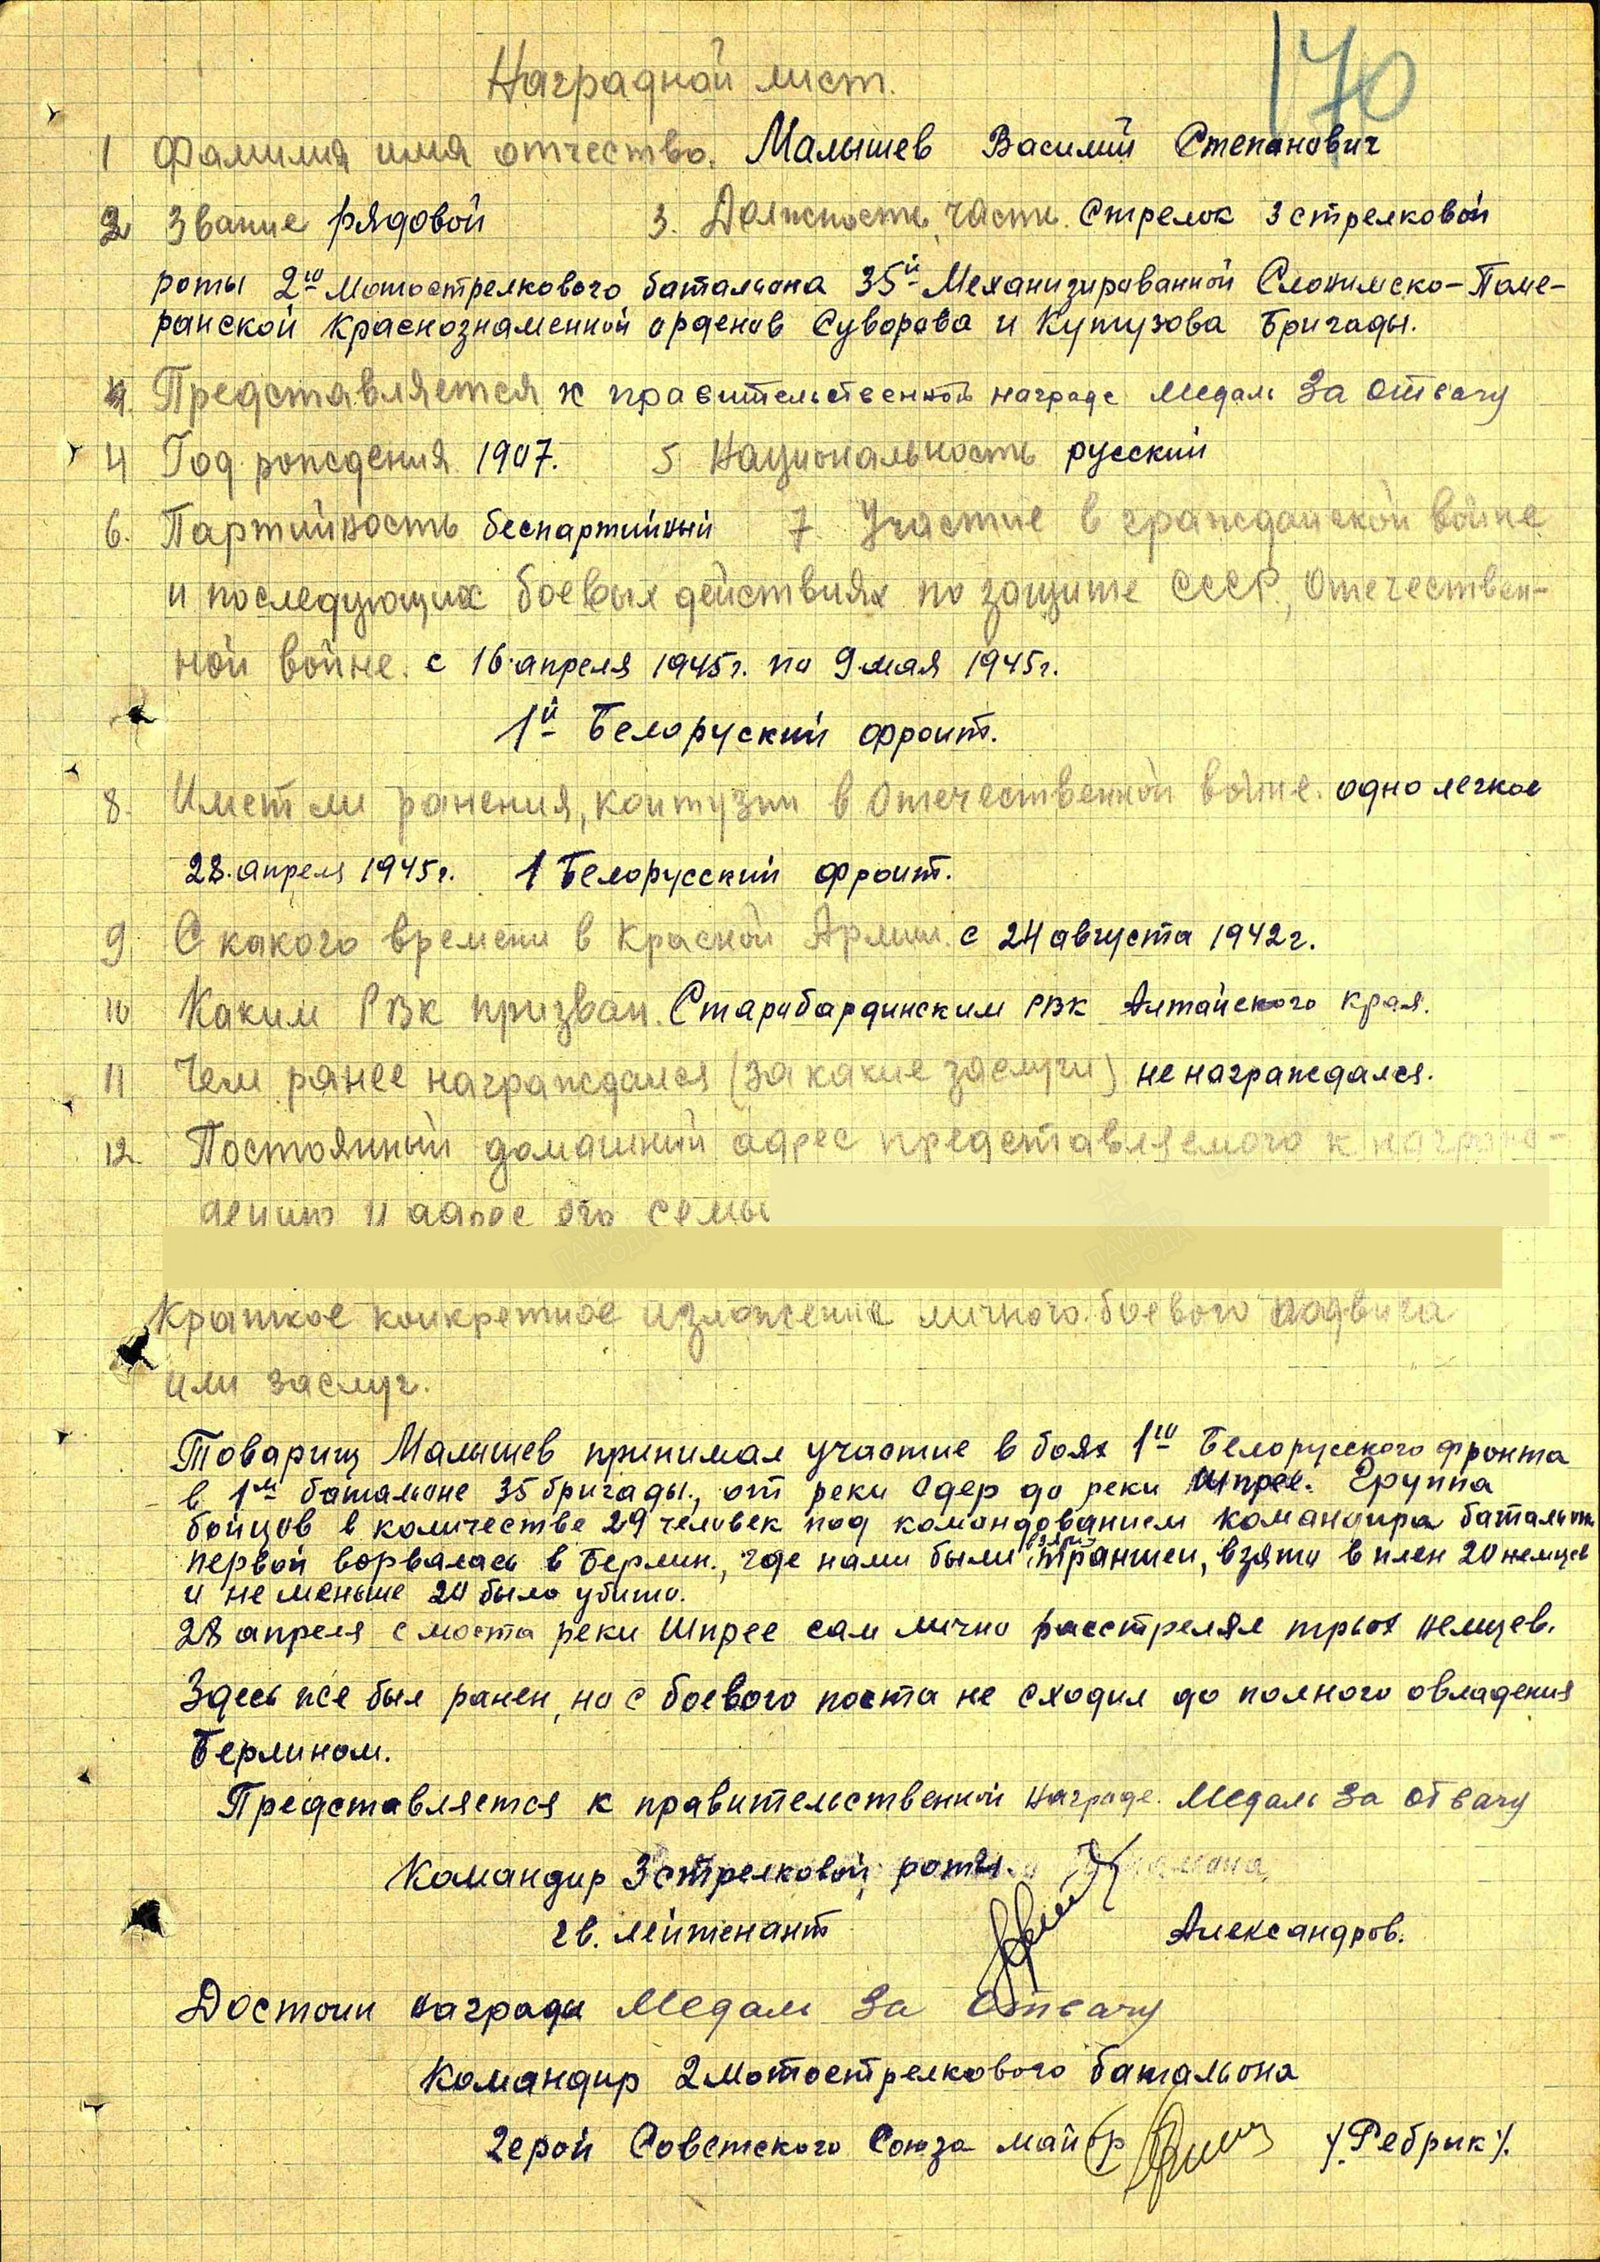 170
Наградной лист.
1 Фамилия имя отчество. Малышев Василий Степанович
2 Звание рядовой 3. Должность, часть. Стрелок 3 стрелковой
роты 2го Мотострелкового батальона 35й Механизированной Слонимско-Поме-
ранской Краснознаменной орденов Суворова и Кутузова Бригады.
Представляется к правительственной награде Медаль За отвагу
4 Год рождения 1907. 5 Национальность русский
6. Партийность беспартийный 7 Участие в гражданской войне
и последующих боевых действиях по защите СССР, Отечествен-
ной войне. с 16 апреля 1945г. по 9 мая 1945г.
1й Белоруский фронт.
8. Имеет ли ранения, контузии в Отечественной войне. одно легкое
28. апреля 1945г. 1 Белорусский фронт.
9 С какого времени в Красной Армии. с 24 августа 1942г.
10 Каким РВК призван. Старобардинским РВК Алтайского края.
11 Чем ранее награждался (за какие заслуги) не награждался.
12. Постоянный домашний адрес представляемого к награж-
дению и адрес его семьи
ПАМЯТЬ НАРОДА ПАМЯТЬ НАРОДА
Краткое конкретное изложение личного боевого подвига
или заслуг.
Товарищ Малышев принимал участие в боях 1го Белорусского фронта
в 1м батальоне 35 бригады., от реки Одер до реки Шпрее. Группа
бойцов в количестве 29 человек под командованием командира батальона
первой ворвалась в Берлин., где нами были взяты траншеи, взято в плен 20 немцев
и не меньше 20 было убито.
28 апреля с моста реки Шпрее сам лично расстрелял трьох немцев.
Здесь же был ранен, но с боевого поста не сходил до полного овладения
Берлином.
Представляется к правительственной награде. Медаль За отвагу
Командир 3 стрелковой роты.
гв. лейтенант Александров.
Достоин награды Медаль За Отвагу
Командир 2 мотострелкового батальона
Герой Советского Союза майор /Ребрык/.